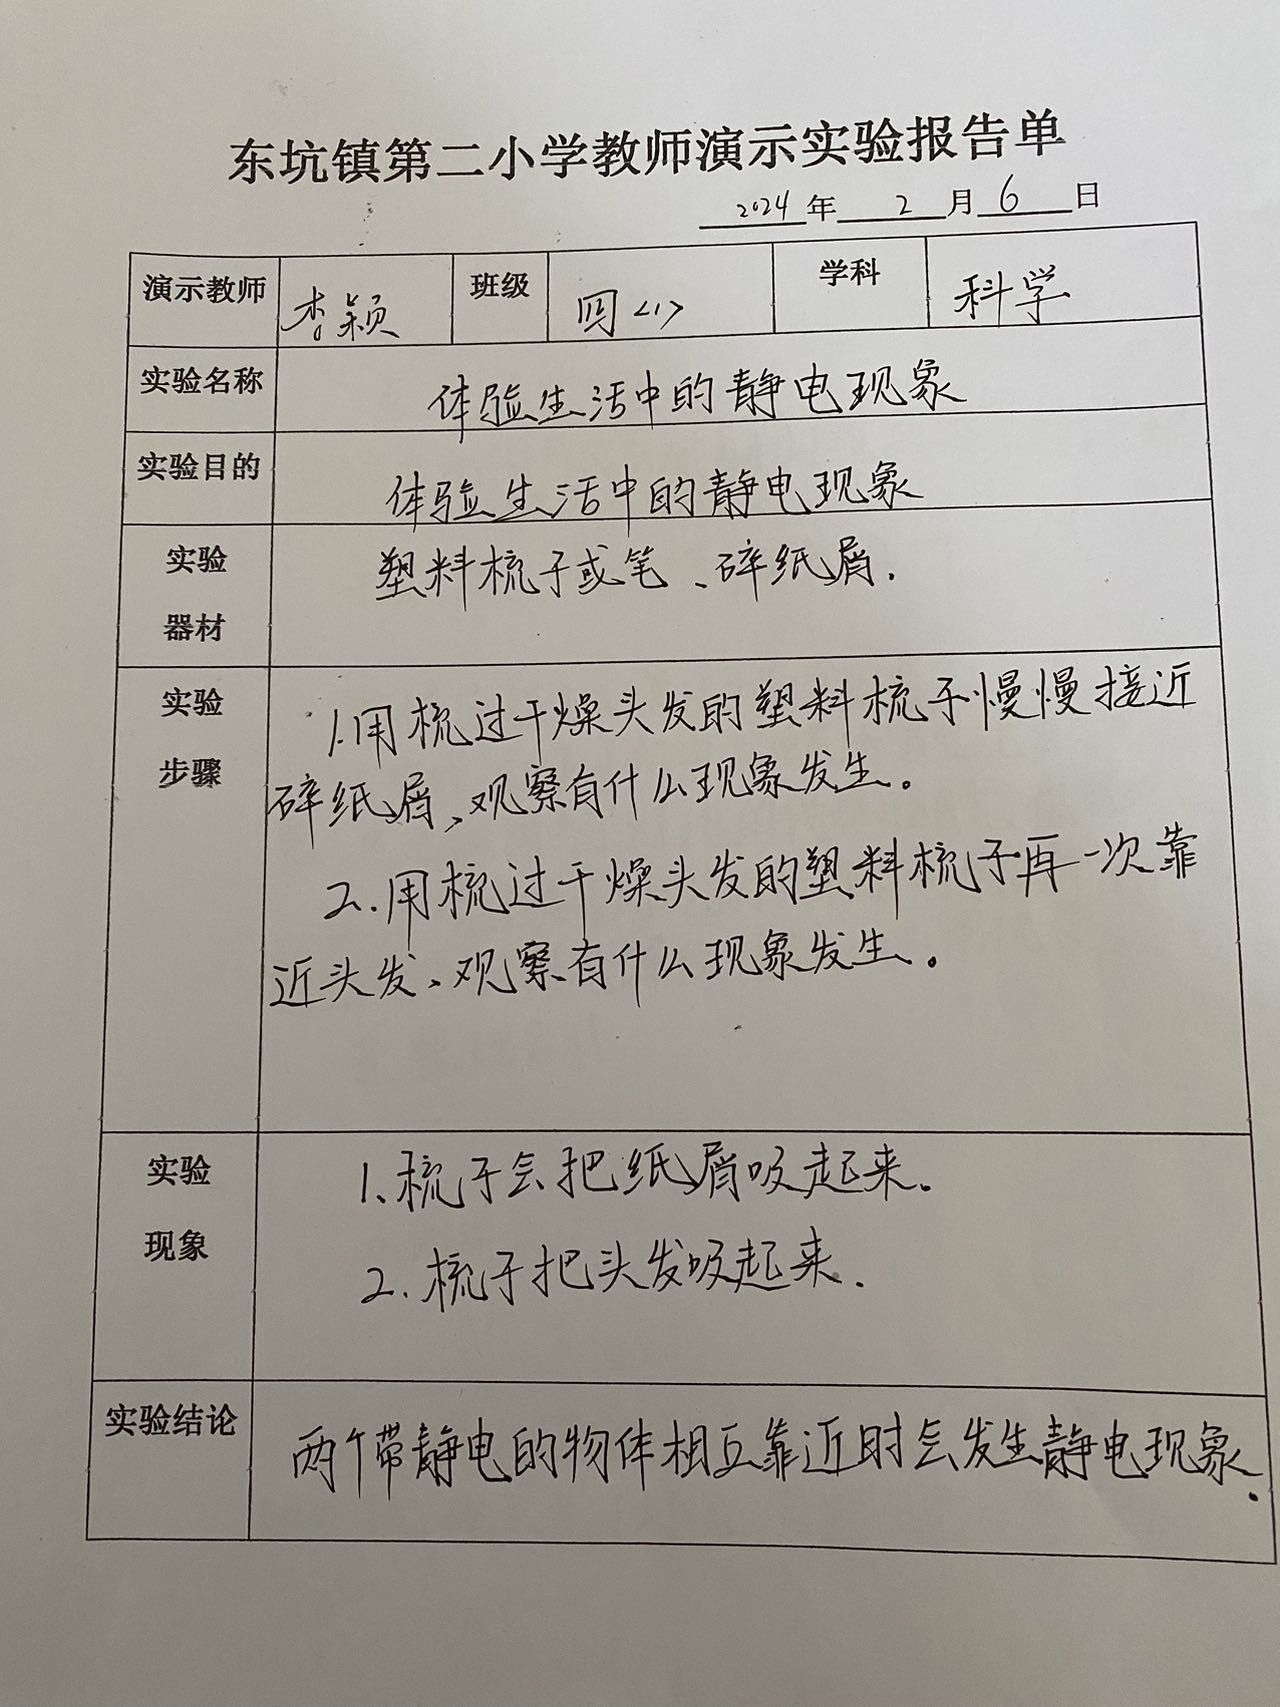 东坑镇第二小学教师演示实验报告单
2024年 2 月 6 日
演示教师 李颖 班级 四<1> 学科 科学
实验名称 体验生活中的静电现象
实验目的 体验生活中的静电现象
实验 塑料梳子或笔、碎纸屑.
器材
实验 1.用梳过干燥头发的塑料梳子慢慢接近
步骤 碎纸屑、观察有什么现象发生。
2.用梳过干燥头发的塑料梳子再一次靠
近头发、观察有什么现象发生。
实验 1、梳子会把纸屑吸起来.
现象 2.梳子把头发吸起来.
实验结论 两个带静电的物体相互靠近时会发生静电现象.